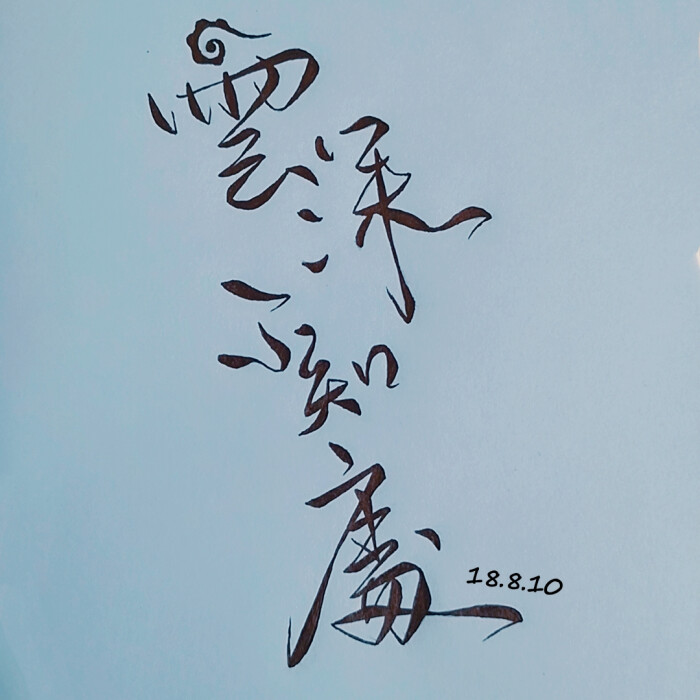 雲深不知處
18.8.10